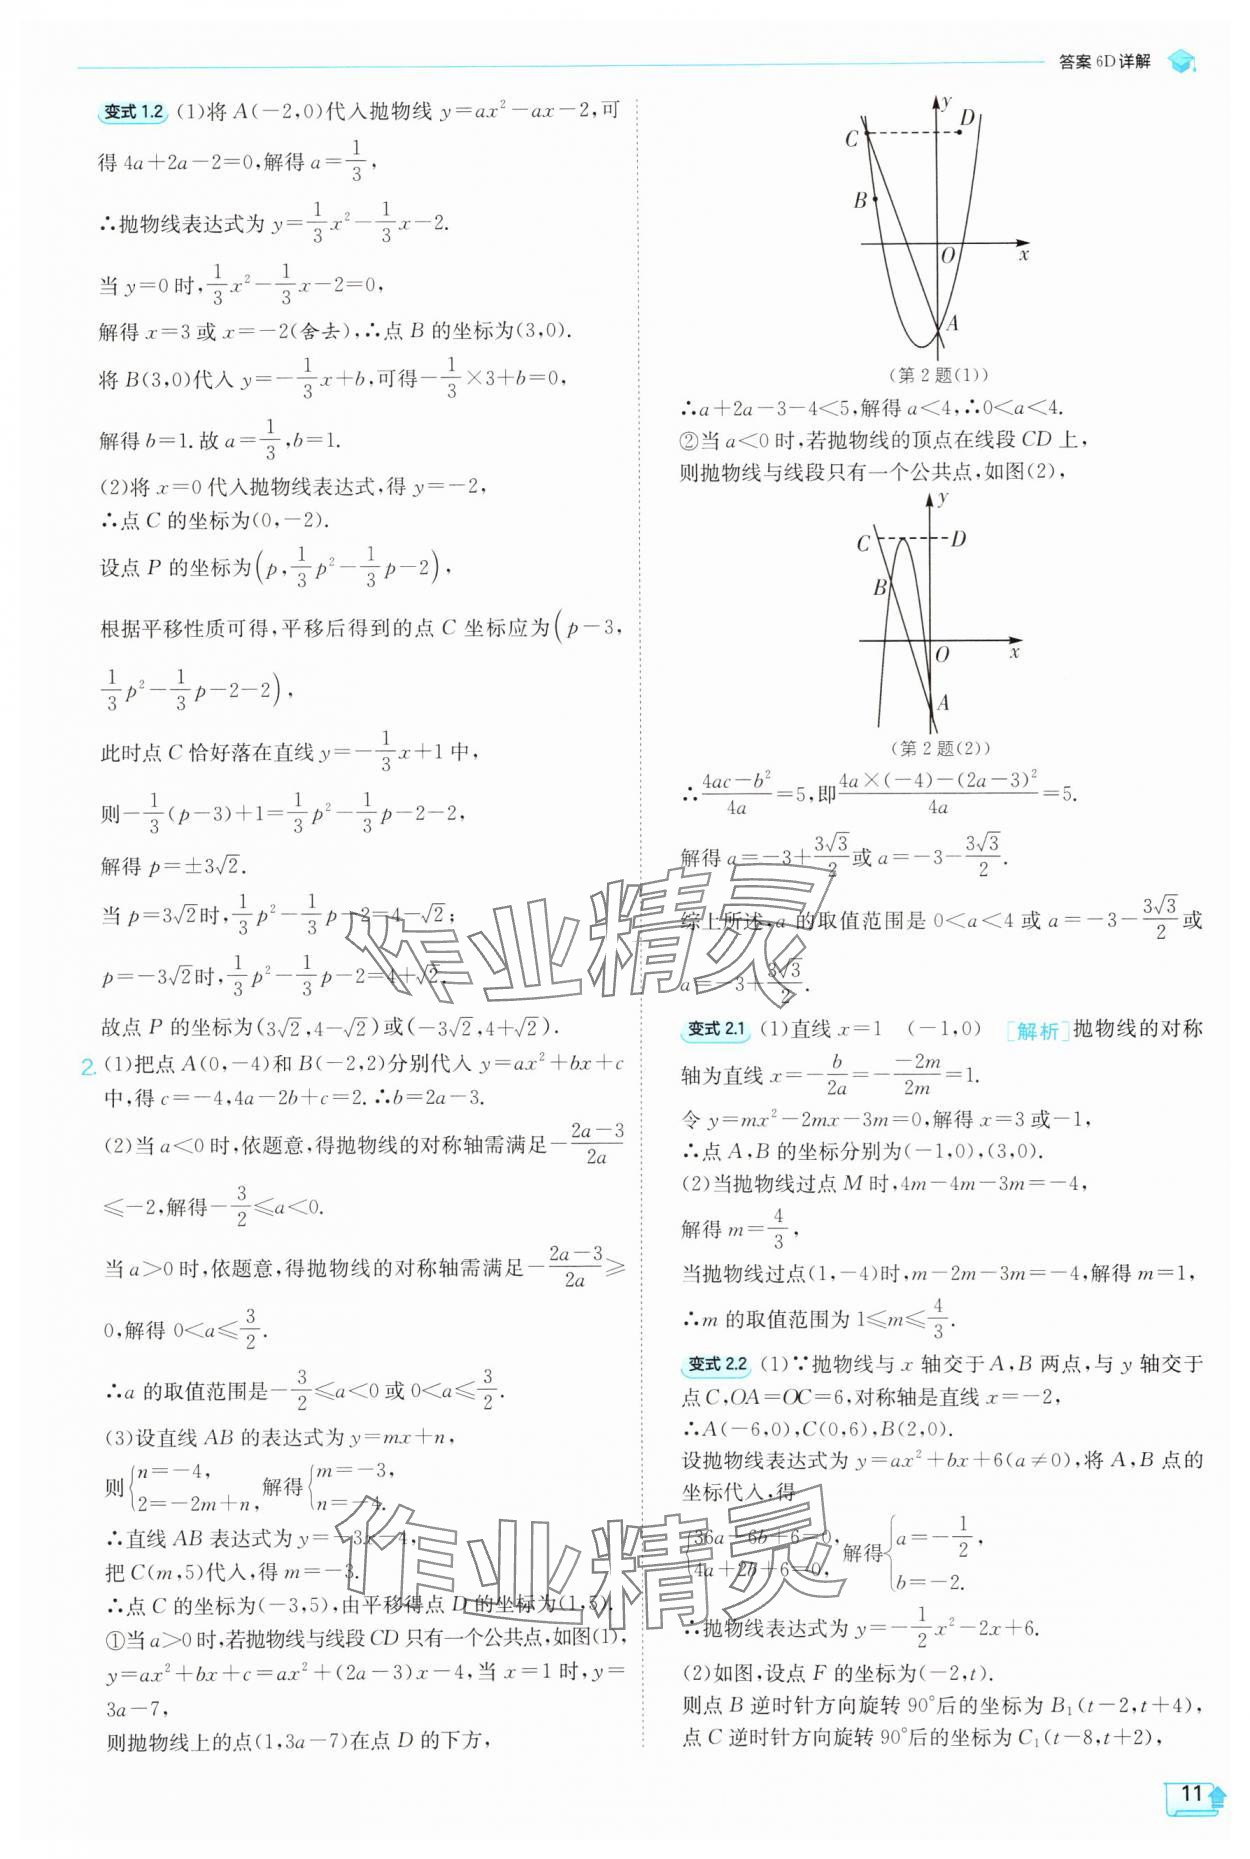 答案 6D 详解
变式 1.2 (1)将 A(-2,0)代入抛物线 y=ax²-ax-2,可
得 4a+2a-2=0,解得 a=1/3,
∴抛物线表达式为 y=1/3x²-1/3x-2.
当 y=0 时,1/3x²-1/3x-2=0,
解得 x=3 或 x=-2(舍去),∴点 B 的坐标为(3,0).
将 B(3,0)代入 y=-1/3x+b,可得-1/3×3+b=0,
解得 b=1.故 a=1/3,b=1.
(2)将 x=0 代入抛物线表达式,得 y=-2,
∴点 C 的坐标为(0,-2).
设点 P 的坐标为(p,1/3p²-1/3p-2),
根据平移性质可得,平移后得到的点 C 坐标应为(p-3,
1/3p²-1/3p-2-2),
此时点 C 恰好落在直线 y=-1/3x+1 中,
则-1/3(p-3)+1=1/3p²-1/3p-2-2,
解得 p=±3√2.
当 p=3√2时,1/3p²-1/3p-2=4-√2;
p=-3√2时,1/3p²-1/3p-2=4+√2.
故点 P 的坐标为(3√2,4-√2)或(-3√2,4+√2).
2. (1)把点 A(0,-4)和 B(-2,2)分别代入 y=ax²+bx+c
中,得 c=-4,4a-2b+c=2.∴b=2a-3.
(2)当 a<0 时,依题意,得抛物线的对称轴需满足-(2a-3)/2a
≤-2,解得-3/2≤a<0.
当 a>0 时,依题意,得抛物线的对称轴需满足-(2a-3)/2a≥
0,解得 0<a≤3/2.
∴a 的取值范围是-3/2≤a<0 或 0<a≤3/2.
(3)设直线 AB 的表达式为 y=mx+n,
则{n=-4, 2=-2m+n, 解得{m=-3, n=-4.
∴直线 AB 表达式为 y=-3x-4,
把 C(m,5)代入,得 m=-3.
∴点 C 的坐标为(-3,5),由平移得点 D 的坐标为(1,5).
①当 a>0 时,若抛物线与线段 CD 只有一个公共点,如图(1),
y=ax²+bx+c=ax²+(2a-3)x-4,当 x=1 时,y=
3a-7,
则抛物线上的点(1,3a-7)在点 D 的下方,
y
C
D
B
O
x
A
(第 2 题(1))
∴a+2a-3-4<5,解得 a<4,∴0<a<4.
②当 a<0 时,若抛物线的顶点在线段 CD 上,
则抛物线与线段只有一个公共点,如图(2),
y
C
D
B
O
x
A
(第 2 题(2))
∴(4ac-b²)/4a=5,即(4a×(-4)-(2a-3)²)/4a=5.
解得 a=-3+3√3/2或 a=-3-3√3/2.
综上所述,a 的取值范围是 0<a<4 或 a=-3-3√3/2或
a=-3+3√3/2.
变式 2.1 (1)直线 x=1 (-1,0) [解析]抛物线的对称
轴为直线 x=-b/2a=-(-2m)/2m=1.
令 y=mx²-2mx-3m=0,解得 x=3 或-1,
∴点 A,B 的坐标分别为(-1,0),(3,0).
(2)当抛物线过点 M 时,4m-4m-3m=-4,
解得 m=4/3,
当抛物线过点(1,-4)时,m-2m-3m=-4,解得 m=1,
∴m 的取值范围为 1≤m≤4/3.
变式 2.2 (1)∵抛物线与 x 轴交于 A,B 两点,与 y 轴交于
点 C,OA=OC=6,对称轴是直线 x=-2,
∴A(-6,0),C(0,6),B(2,0).
设抛物线表达式为 y=ax²+bx+6(a≠0),将 A,B 点的
坐标代入,得
{36a-6b+6=0, 4a+2b+6=0, 解得{a=-1/2, b=-2.
∴抛物线表达式为 y=-1/2x²-2x+6.
(2)如图,设点 F 的坐标为(-2,t).
则点 B 逆时针方向旋转 90°后的坐标为 B₁(t-2,t+4),
点 C 逆时针方向旋转 90°后的坐标为 C₁(t-8,t+2),
作业精灵
作业精灵
11